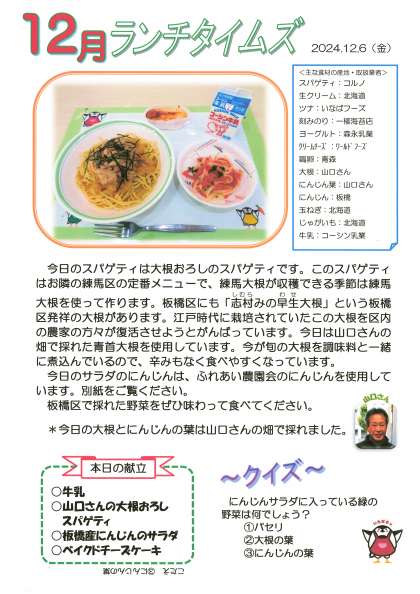 12月ランチタイムズ
2024.12.6（金）
＜主な食材の産地・取扱業者＞
スパゲティ：コルノ
生クリーム：北海道
ツナ：いなばフーズ
刻みのり：一柳海苔店
ヨーグルト：森永乳業
クリームチーズ：ワールドフーズ
鶏卵：青森
大根：山口さん
にんじん葉：山口さん
にんじん：板橋
玉ねぎ：北海道
じゃがいも：北海道
牛乳：コーシン乳業
今日のスパゲティは大根おろしのスパゲティです。このスパゲティ
はお隣の練馬区の定番メニューで、練馬大根が収穫できる季節は練馬
大根を使って作ります。板橋区にも「志村みの早生大根」という板橋
しむら わせ
区発祥の大根があります。江戸時代に栽培されていたこの大根を区内
の農家の方々が復活させようとがんばっています。今日は山口さんの
畑で採れた青首大根を使用しています。今が旬の大根を調味料と一緒
に煮込んでいるので、辛みもなく食べやすくなっています。
今日のサラダのにんじんは、ふれあい農園会のにんじんを使用して
います。別紙をご覧ください。
板橋区で採れた野菜をぜひ味わって食べてください。
＊今日の大根とにんじんの葉は山口さんの畑で採れました。
山口さん
本日の献立
○牛乳
○山口さんの大根おろし
スパゲティ
○板橋産にんじんのサラダ
○ベイクドチーズケーキ
～クイズ～
にんじんサラダに入っている緑の
野菜は何でしょう？
①パセリ
②大根の葉
③にんじんの葉
こたえ ③にんじんの葉